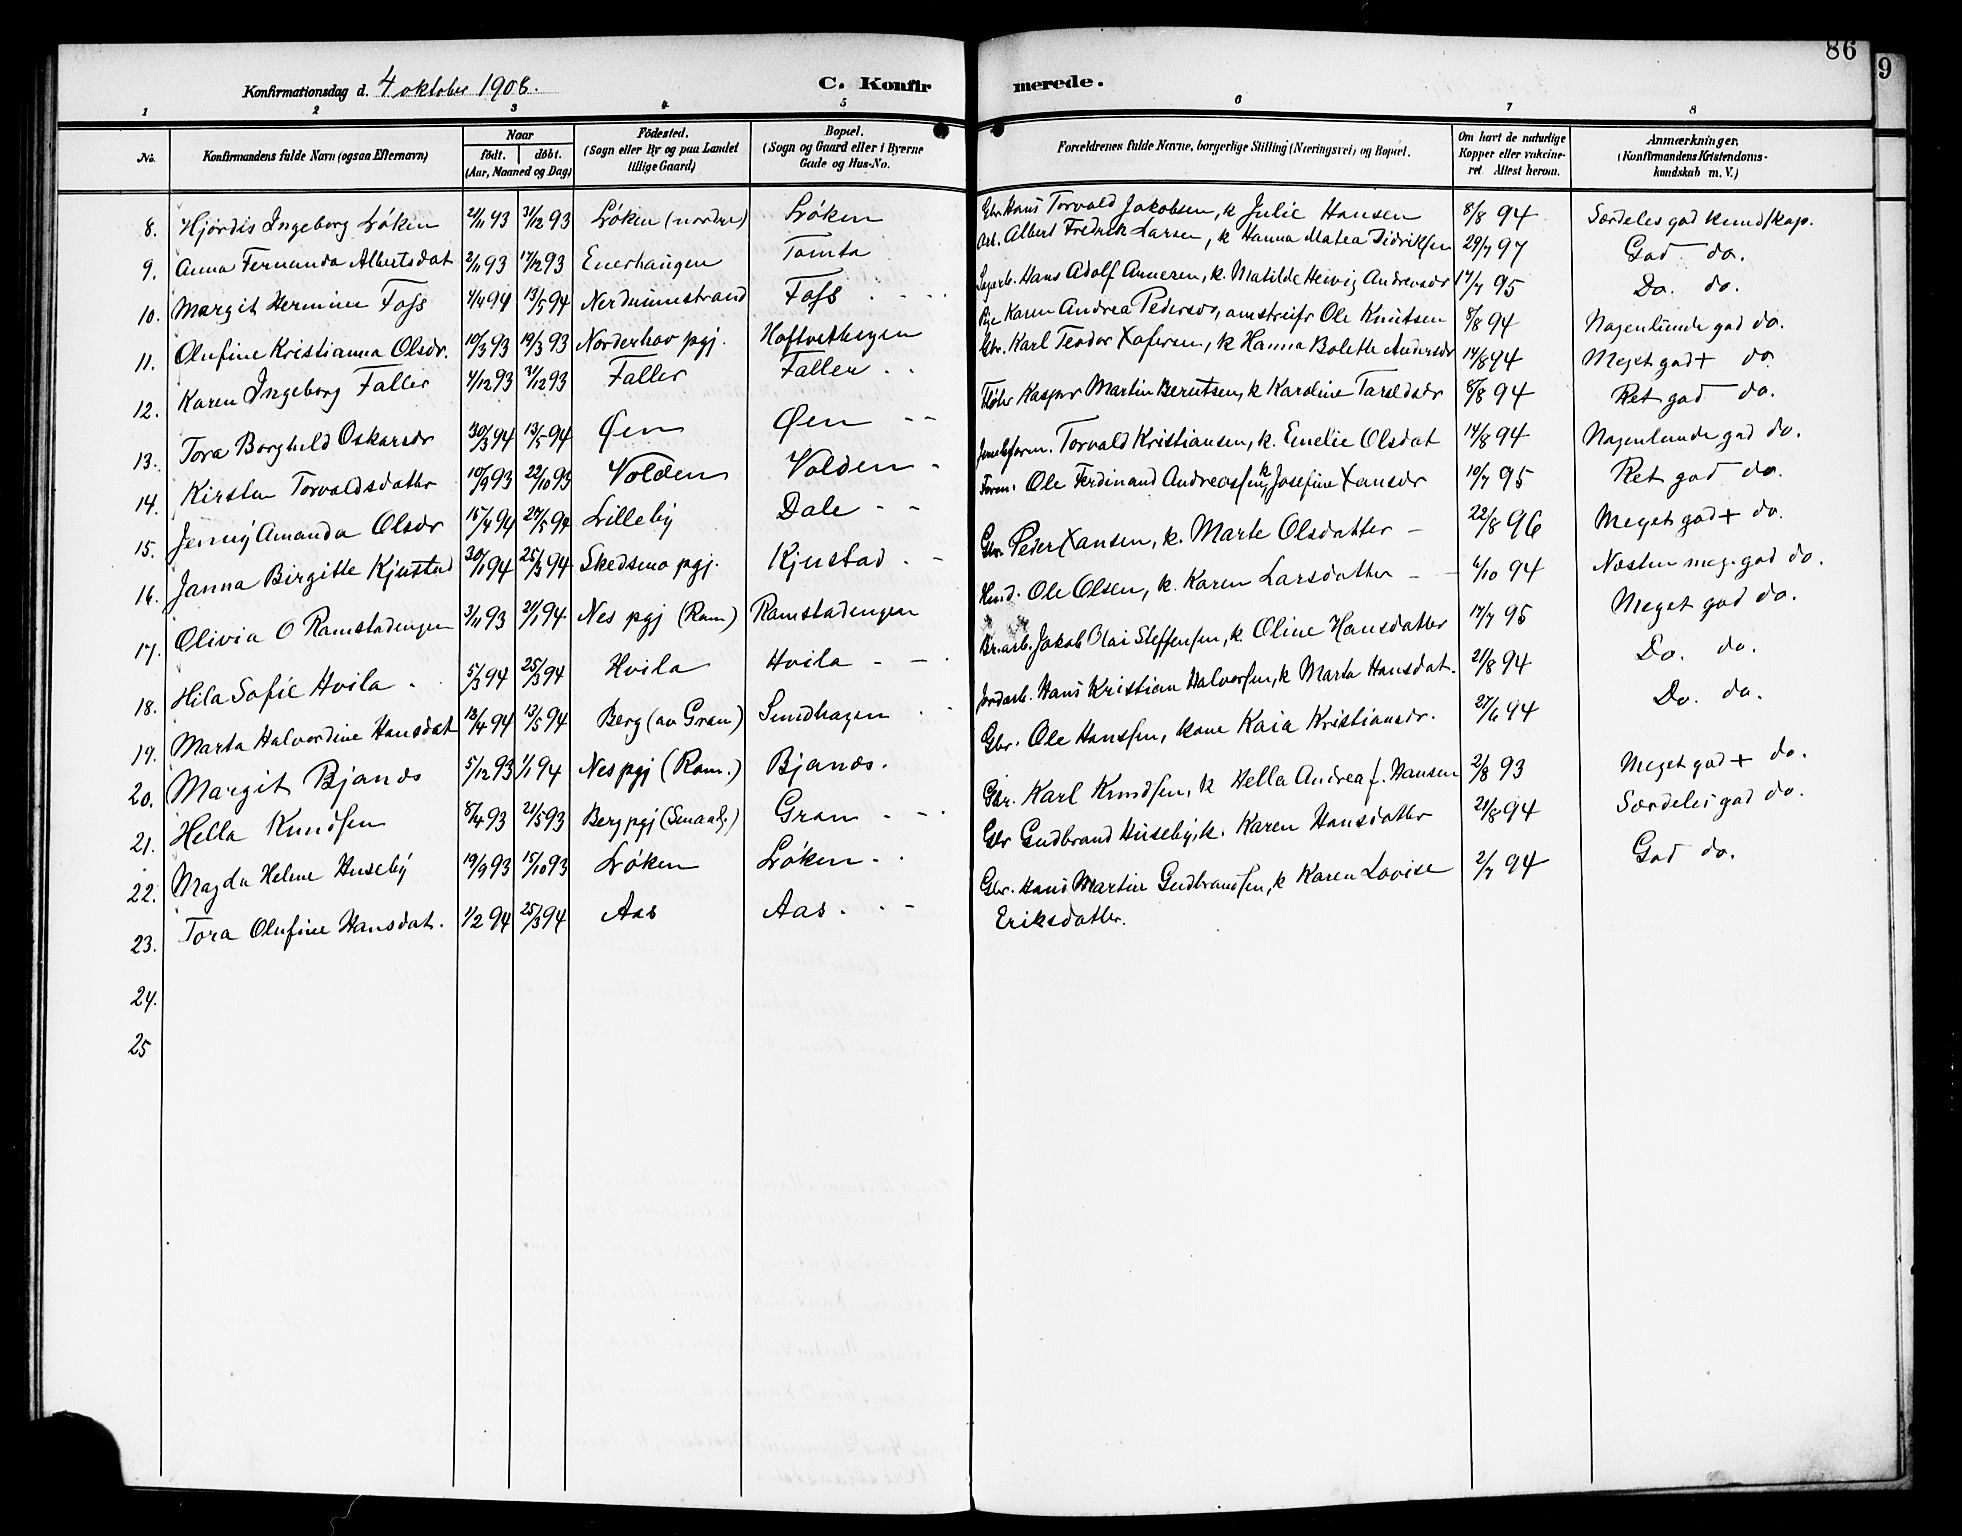 86
9
Konfirmationsdag d. 4 oktober 1908.
C. Konfirmerede.
1 2 3 4 5 6 7 8
No. Konfirmandens fulde Navn (ogsaa Efternavn) Naar født. døbt. (Aar, Maaned og Dag) Fødested. (Sogn eller By og paa Landet tillige Gaard) Bopæl. (Sogn og Gaard eller i Byerne Gade og Hus-No. Forældrenes fulde Navne, borgerlige Stilling (Næringsvei) og Bopæl. Om havt de naturlige Kopper eller vakcineret. Attest herom. Anmærkninger. (Konfirmandens Kristendomskundskab m. V.)
8. Hjørdis Ingeborg Løken 21/11 93 31/12 93 Løken (nordre) Løken Gbr. Hans Torvald Jakobsen, k Julie Hansen 8/8 94 Særdeles god kundskap.
9. Anna Fernanda Albertsdat 2/11 93 17/12 93 Enerhaugen Tomta Arb. Albert Fredrik Larsen, k Hanna Matea Didriksen 29/7 97 God do.
10. Margit Hermine Foss 4/4 94 13/5 94 Nerdrumstrand Foss Hans Adolf Annesen, k. Matilde Heivig Andreasdr 17/7 95 Do. do.
11. Olufine Kristianna Olsdr. 10/3 93 19/3 93 Norderhov pgj. Hoftvetbergen Pige Karen Andrea Pedersdr, Ole Knutsen 8/8 94 Nogenlunde god do.
12. Karen Ingeborg Faller 4/12 93 31/12 93 Faller Faller Gbr. Karl Teodor Xofersen, k Hanna Bolette Andersdr 14/8 94 Meget god + do
13. Tora Borghild Oskarsdr 30/3 94 13/5 94 Øen Øen Kasper Martin Berntsen, k Karoline Taraldsdr 8/8 94 Ret god do.
14. Kirsten Torvaldsdatter 10/9 93 22/10 93 Volden Volden Torvald Kristiansen, k. Emelie Olsdat 14/8 94 Nogenlunde god do.
15. Jenny Amanda Olsdr 15/4 94 27/5 94 Lilleby Dale Form. Ole Ferdinand Andreassen, k Josefine Xansdr 10/7 95 Ret god do.
16. Janna Birgitte Kjustad 30/1 94 25/3 94 Skedsmo pgj. Kjustad Gbr. Peder Xansen, k. Marte Olsdatter 22/8 96 Meget god + do.
17. Olivia O Ramstadengen 3/11 93 21/1 94 Nes pgj (Rom) Ramstadengen Husd. Ole Olsen, k. Karen Larsdatter 6/10 94 Næsten meg. god do.
18. Hila Sofie Hvila 5/3 94 25/3 94 Hvila Hvila Br.arb. Jakob Olai Steffensen, k. Oline Hansdatter 17/7 95 Meget god do.
19. Marta Halvordine Hansdat 12/4 94 13/5 94 Berg (av Gran) Sundhagen Jordarb. Hans Kristian Halvorsen, k Marta Hansdat. 21/8 94 Do. do.
20. Margit Bjanes 5/12 93 1/1 94 Nes pgj (Rom.) Bjanes. Gbr. Ole Hanssen, kone Kaia Kristiansdr. 27/6 94 Do. do.
21. Hella Knudsen 8/4 93 21/5 93 Berg pgj (Smaal.) Gran Gbr. Karl Knudsen, k Hella Andrea f. Hansen 2/8 93 Meget god + do.
22. Magda Helene Huseby 19/9 93 15/10 93 Løken Løken Gbr Gudbrand Huseby, k. Karen Hansdatter 21/8 94 Særdeles god do.
23. Tora Olufine Hansdat. 1/2 94 25/3 94 Aas Aas Gbr. Hans Martin Gudbrandsen, k Karen Lovise Eriksdatter. 2/7 94 God do.
24.
25